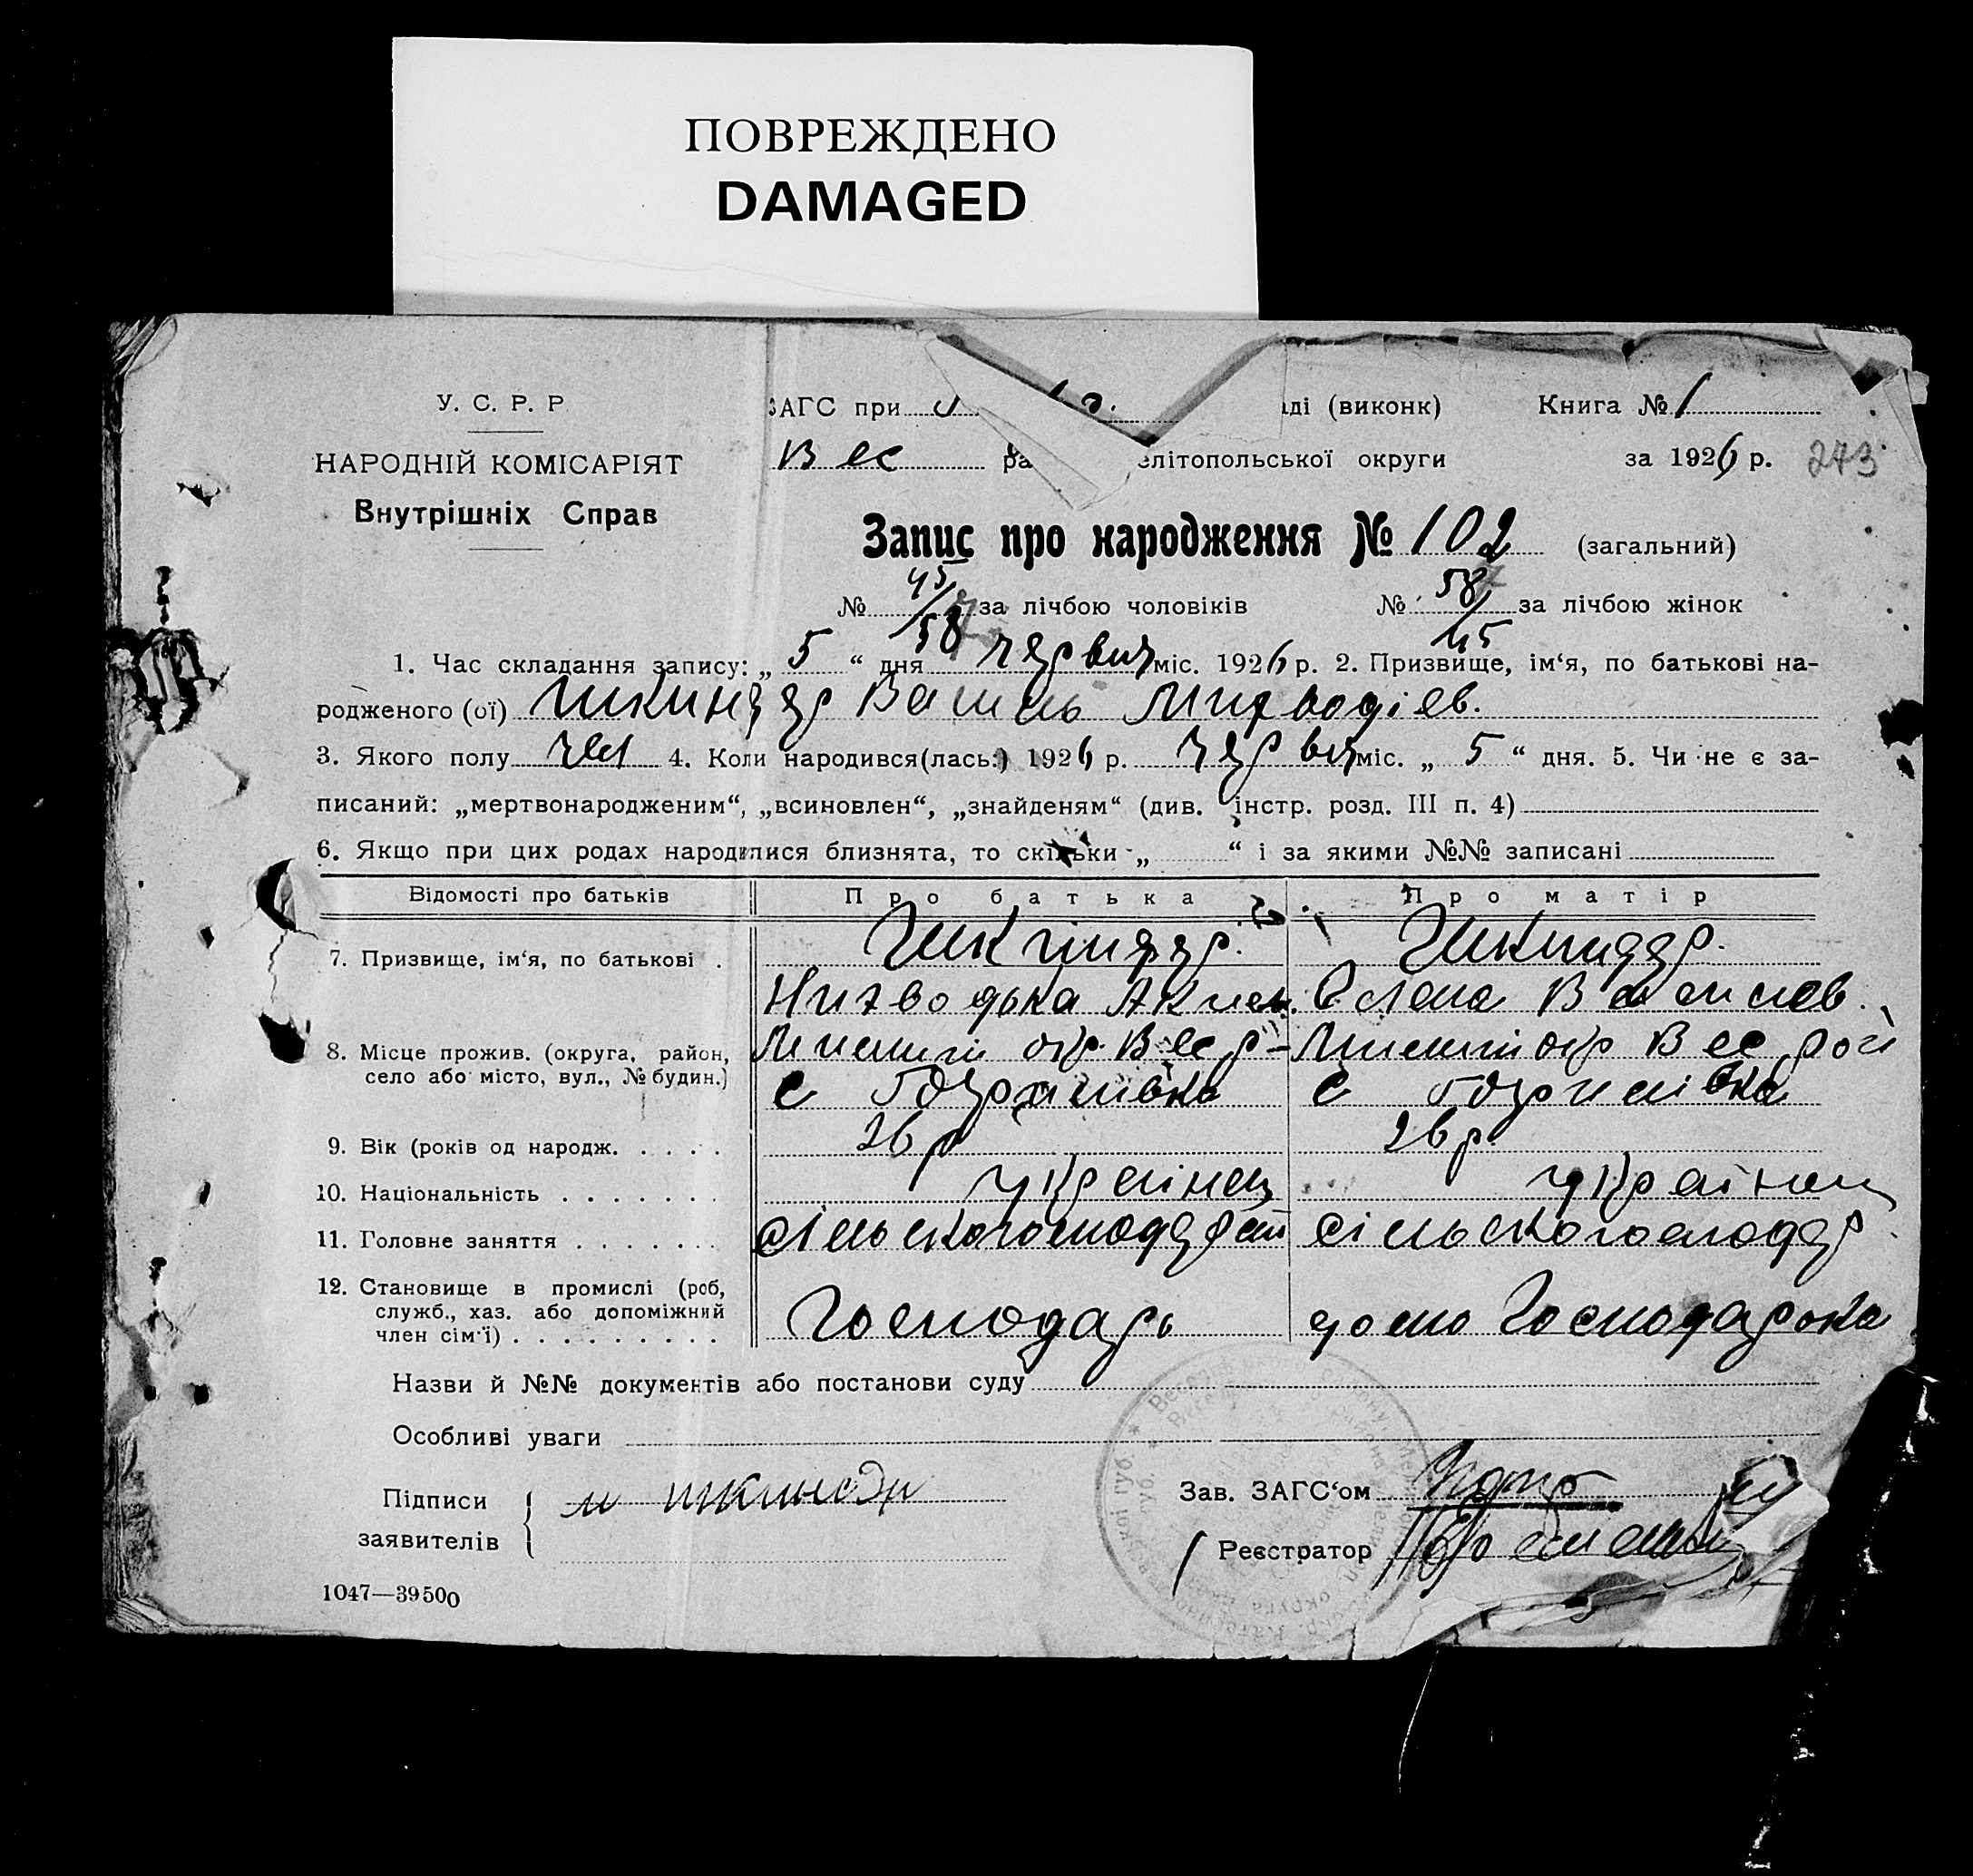 ПОВРЕЖДЕНО
DAMAGED
У. С. Р. Р
НАРОДНІЙ КОМІСАРІЯТ
Внутрішніх Справ
ЗАГС при
ді (виконк)
Книга № 1
Вес ра
елітопольської округи
за 1926 р. 273
Запис про народження № 102 (загальний)
№ 45/58 за лічбою чоловіків № 58/45 за лічбою жінок
1. Час складання запису: „ 5 “ дня червня міс. 1926 р. 2. Призвище, ім‘я, по батькові на-
родженого (ої) Шкиндер Василь
3. Якого полу чол 4. Коли народився(лась:) 1926 р. червня міс. „ 5 “ дня. 5. Чи не є за-
писаний: „мертвонародженим“, „всиновлен“, „знайденям“ (див. інстр. розд. III п. 4)
6. Якщо при цих родах народилися близнята, то скільки „ “ і за якими №№ записані
Відомості про батьків Про батька Про матір
7. Призвище, ім‘я, по батькові . Шкиндер. Шкиндер.
Олена Васильев.
8. Місце прожив. (округа, район, окр. Вес р- окр Вес рой
село або місто, вул., № будин.) с с
9. Вік (років од народж. . . . . 26 р 26 р.
10. Національність . . . . . . . українец українец
11. Головне заняття . . . . . . . сільскогосподар сільскогосподар
12. Становище в промислі (роб,
служб., хаз. або допоміжний
член сім‘ї) . . . . . . . . . Господарь домо Господарька
Назви й №№ документів або постанови суду
Особливі уваги
Підписи
заявителів
м шкиндер
Зав. ЗАГС‘ом
Реєстратор
1047—39500